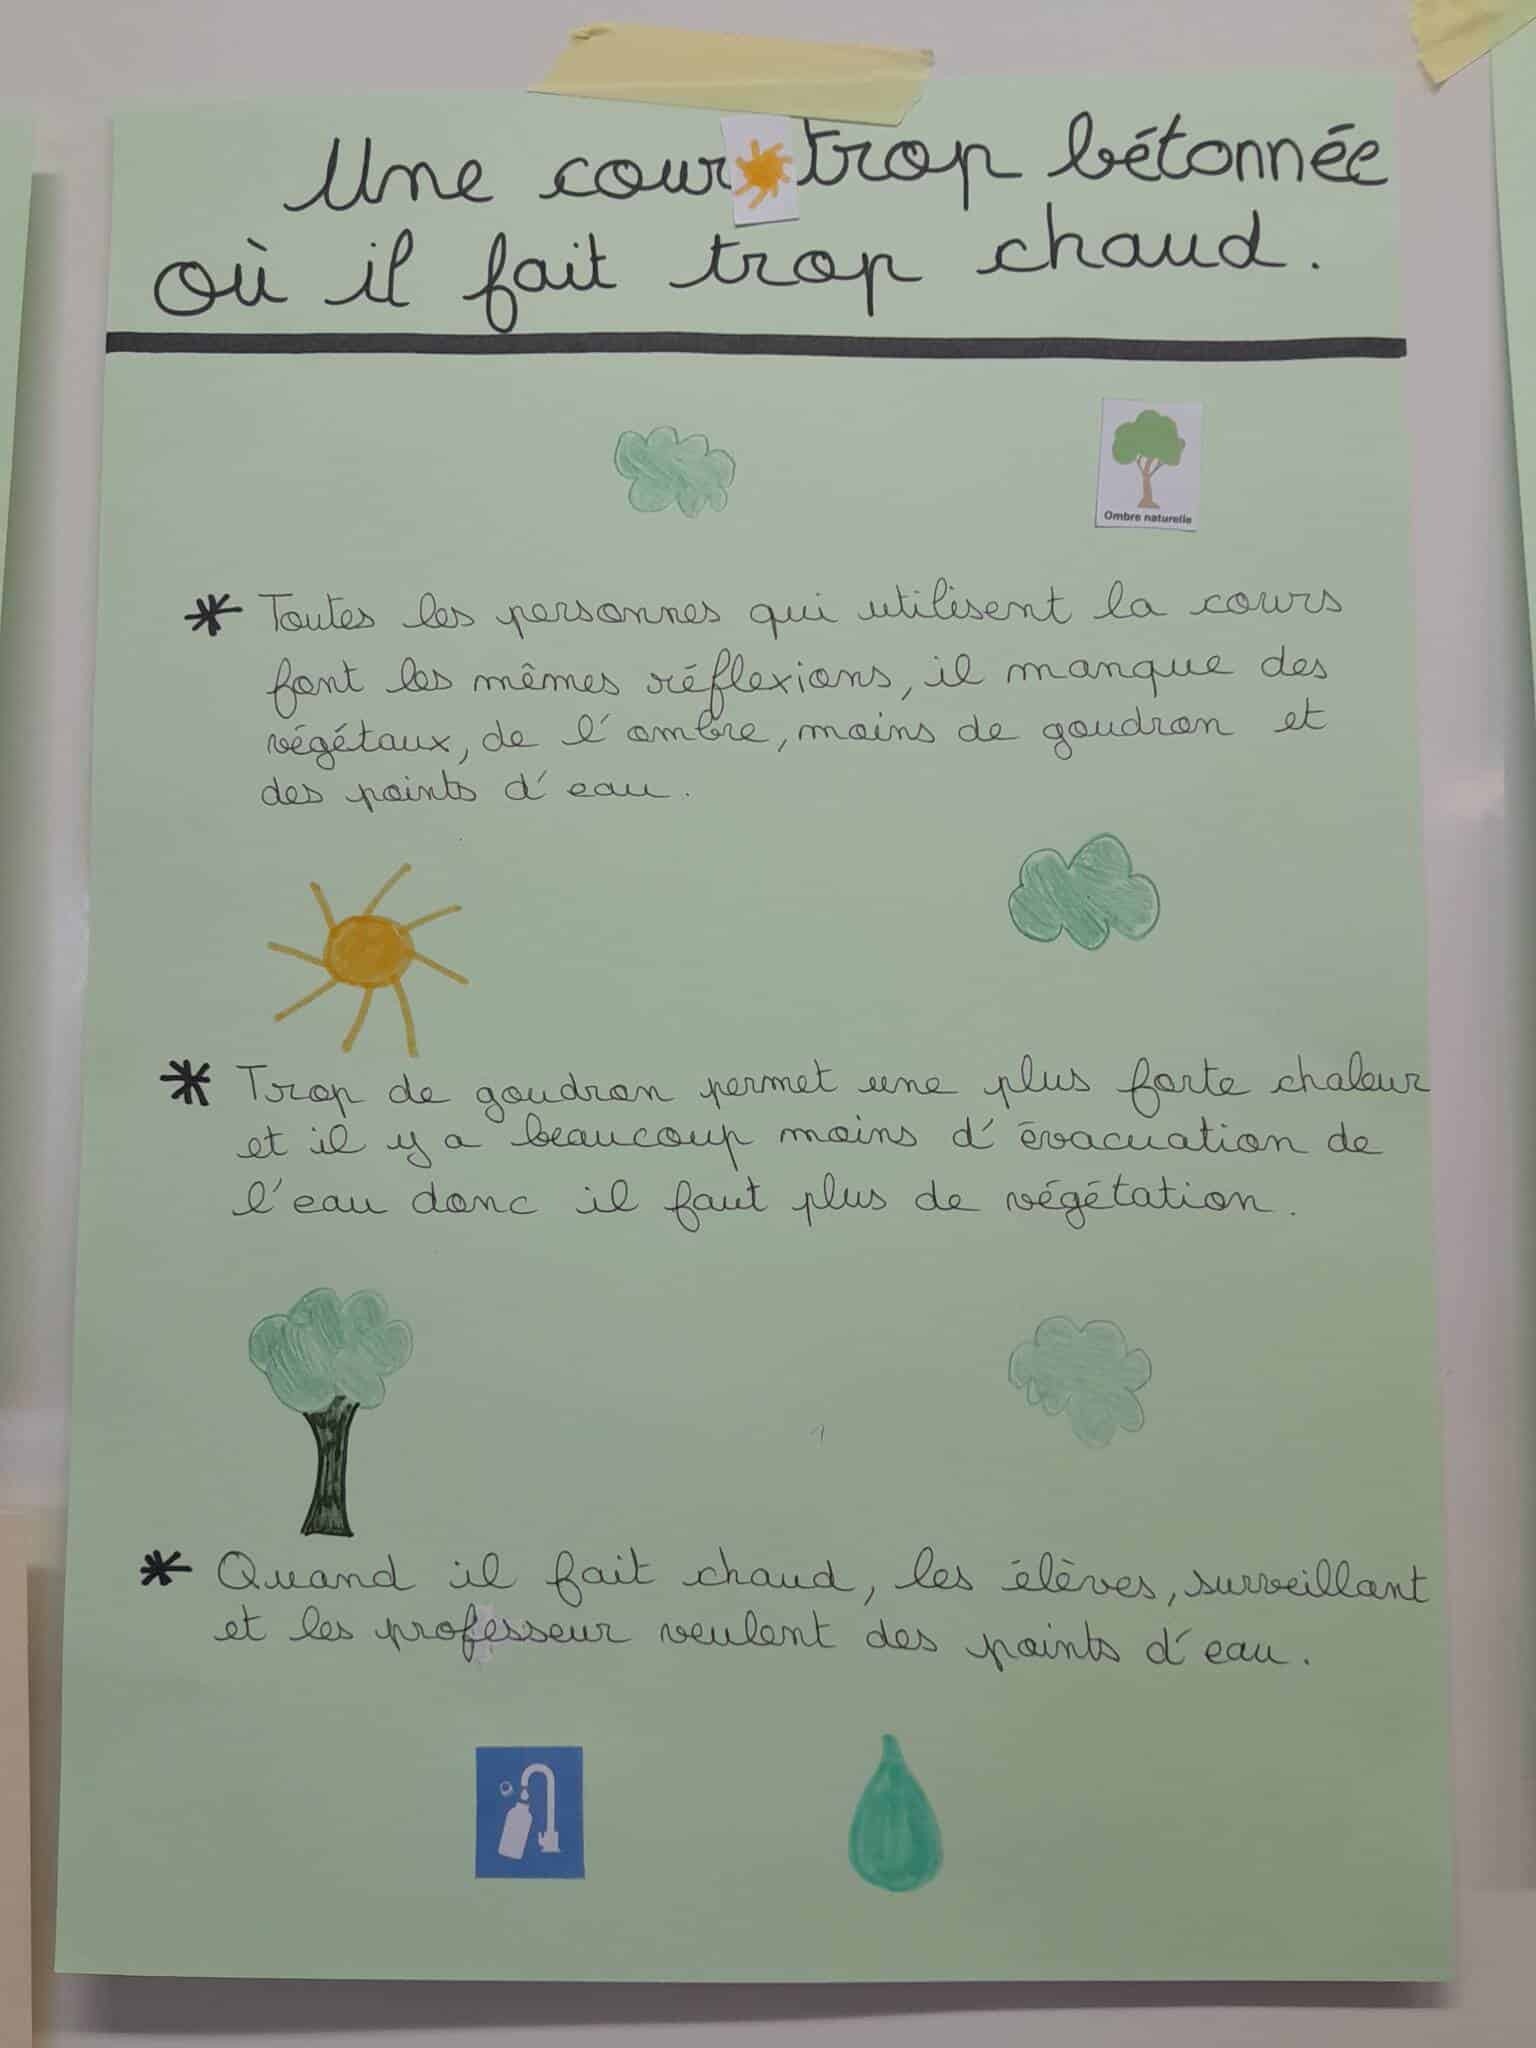 Une cour trop bétonnée
où il fait trop chaud.
Ombre naturelle
* Toutes les personnes qui utilisent la cours
font les mêmes réflexions, il manque des
végétaux, de l'ombre, moins de goudron et
des points d'eau.
* Trop de goudron permet une plus forte chaleur
et il y a beaucoup moins d'évacuation de
l'eau donc il faut plus de végétation.
* Quand il fait chaud, les élèves, surveillant
et les professeur veulent des points d'eau.